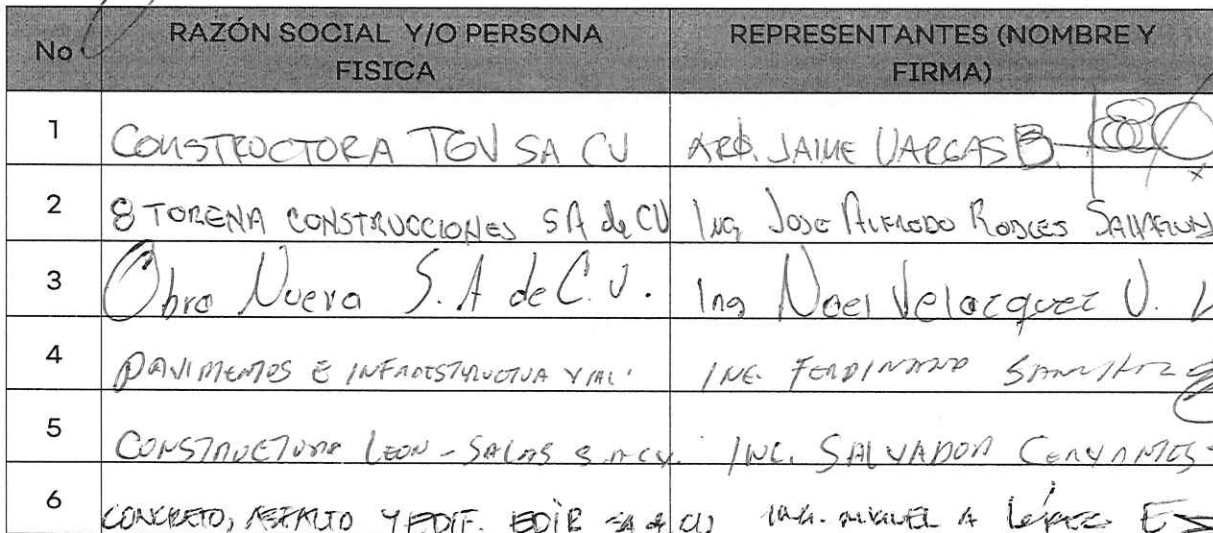 No RAZÓN SOCIAL Y/O PERSONA FISICA REPRESENTANTES (NOMBRE Y FIRMA)
1 CONSTRUCTORA TGV SA CV ARQ. JAIME VARGAS B.
2 8 TORENA CONSTRUCCIONES SA de CV Ing JOSE ALFREDO ROBLES
3 Obra Nueva S.A de C.V. Ing Noel Velazquez V.
4 PAVIMENTOS E INFRAESTRUCTUA VIAL. ING. FERDINAND SANCHEZ
5 CONSTRUCTORA LEON-SALAS S.A CV. ING. SALVADOR CERVANTES
6 CONCRETO, ASFALTO Y EDIF. EDIE SA d CV ING. MIGUEL A LÓPEZ E